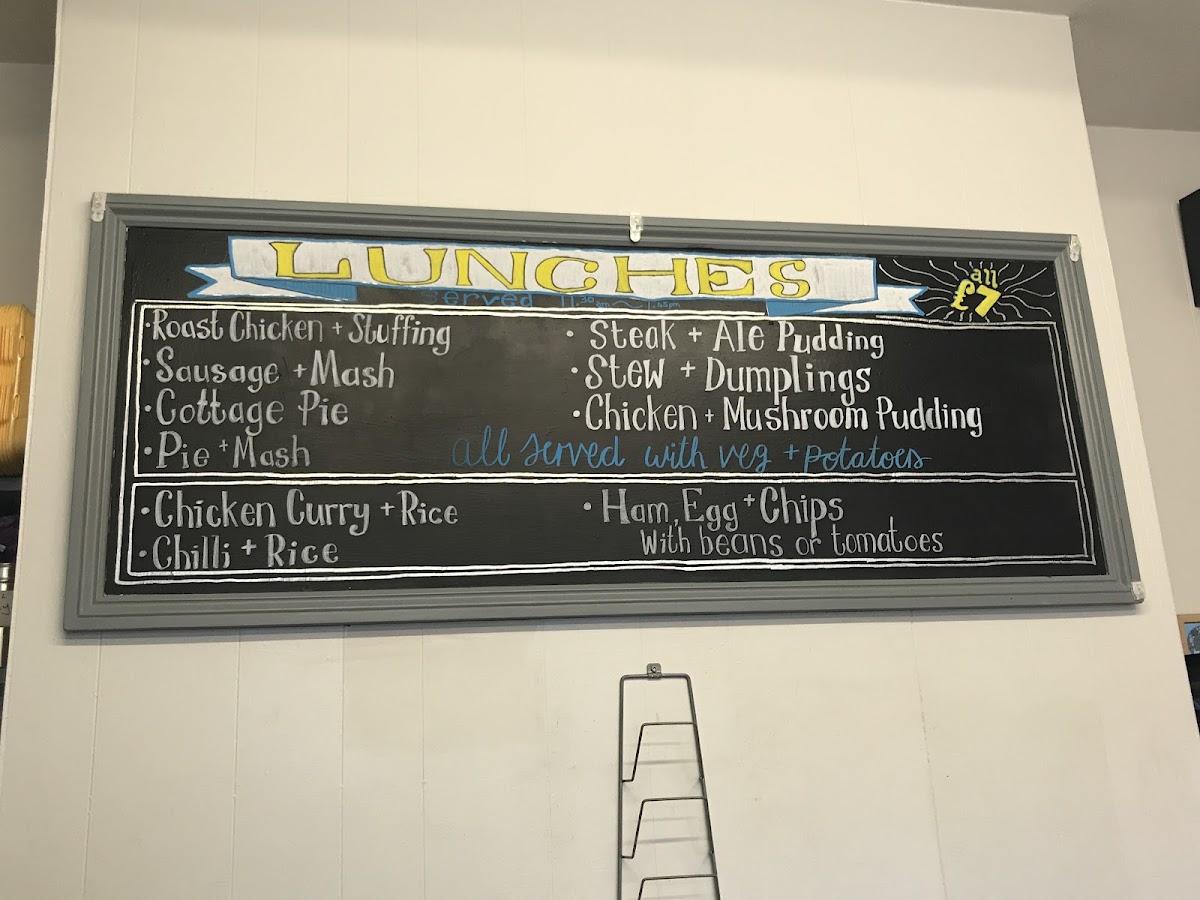 LUNCHES
all
£7
served 11.30am ~ 1.45pm
· Roast Chicken + Stuffing
· Sausage + Mash
· Cottage Pie
· Pie + Mash
· Steak + Ale Pudding
· Stew + Dumplings
· Chicken + Mushroom Pudding
all served with veg + potatoes
· Chicken Curry + Rice
· Chilli + Rice
· Ham, Egg + Chips
With beans or tomatoes